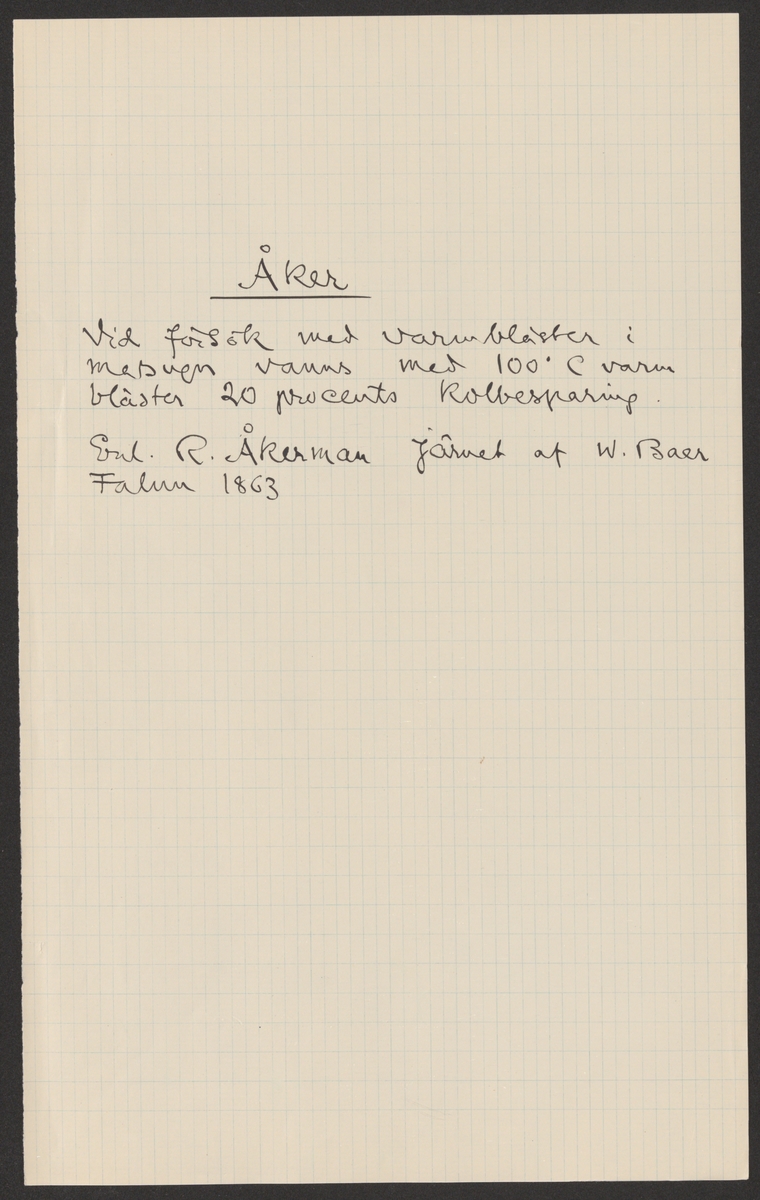 Åker
Vid försök med varmbläster i
masugn vanns med 100° C varm
bläster 20 procents kolbesparing.
Enl. R. Åkerman Järnet af W. Baer
Falun 1863